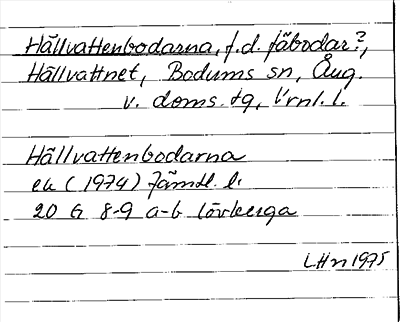 Hällvattenbodarna, f.d. fäbodar?,
Hällvattnet, Bodums sn, Ång.
v. doms. tg, V:rnl. l.
Hällvattenbodarna
ek (1974) Jämtl. l.
20 G 8-9 a-b Lövberga
LHn 1975